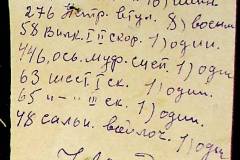 276 Пстр. втул. 8) восем
58 Вилк. I II скор. 1) один.
446, ось. муф. сцеп. 1) один.
63 шест I ск. 1) один.
65 -"- III ск. 1) один.
48 сальн. войлоч. 1) один